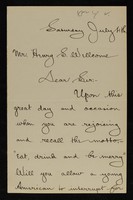 Saturday July 4th
Mr. Henry S. Wellcome
Dear Sir:-
Upon this
great day and occasion
when you are rejoicing
and recall the motto-
"Eat, drink and be merry
Will you allow a young
American to interrupt for